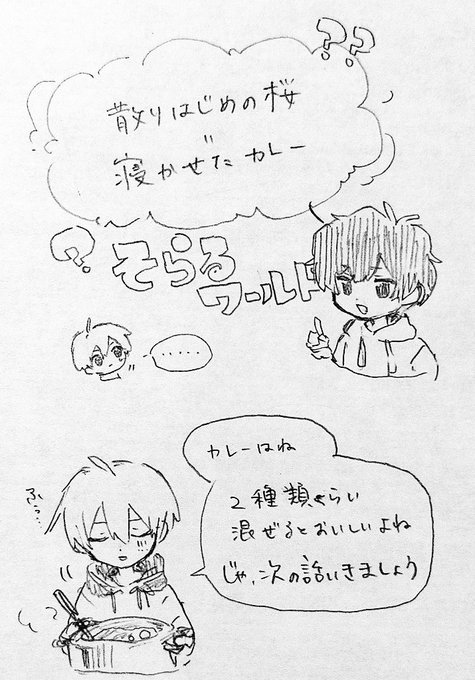 ??
散りはじめの桜
〃
寝かせたカレー
?
そらる
ワールド
.....
カレーはね
2種類くらい
混ぜるとおいしいよね
じゃ、次の話いきましょう
ふぅ…